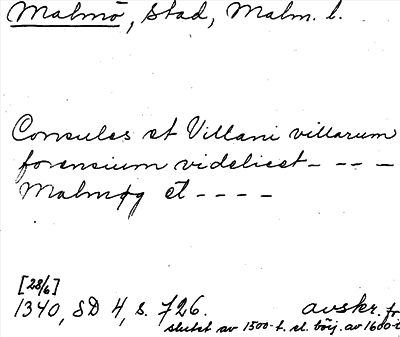 Malmö, Stad, Malm. l.
Consules et Villani villarum
forensium videlicet - - - -
Malmøg et - - - -
[28/6]
1340, SD 4, s. 726. avskr. fr
slutet av 1500-t. el. börj. av 1600-t